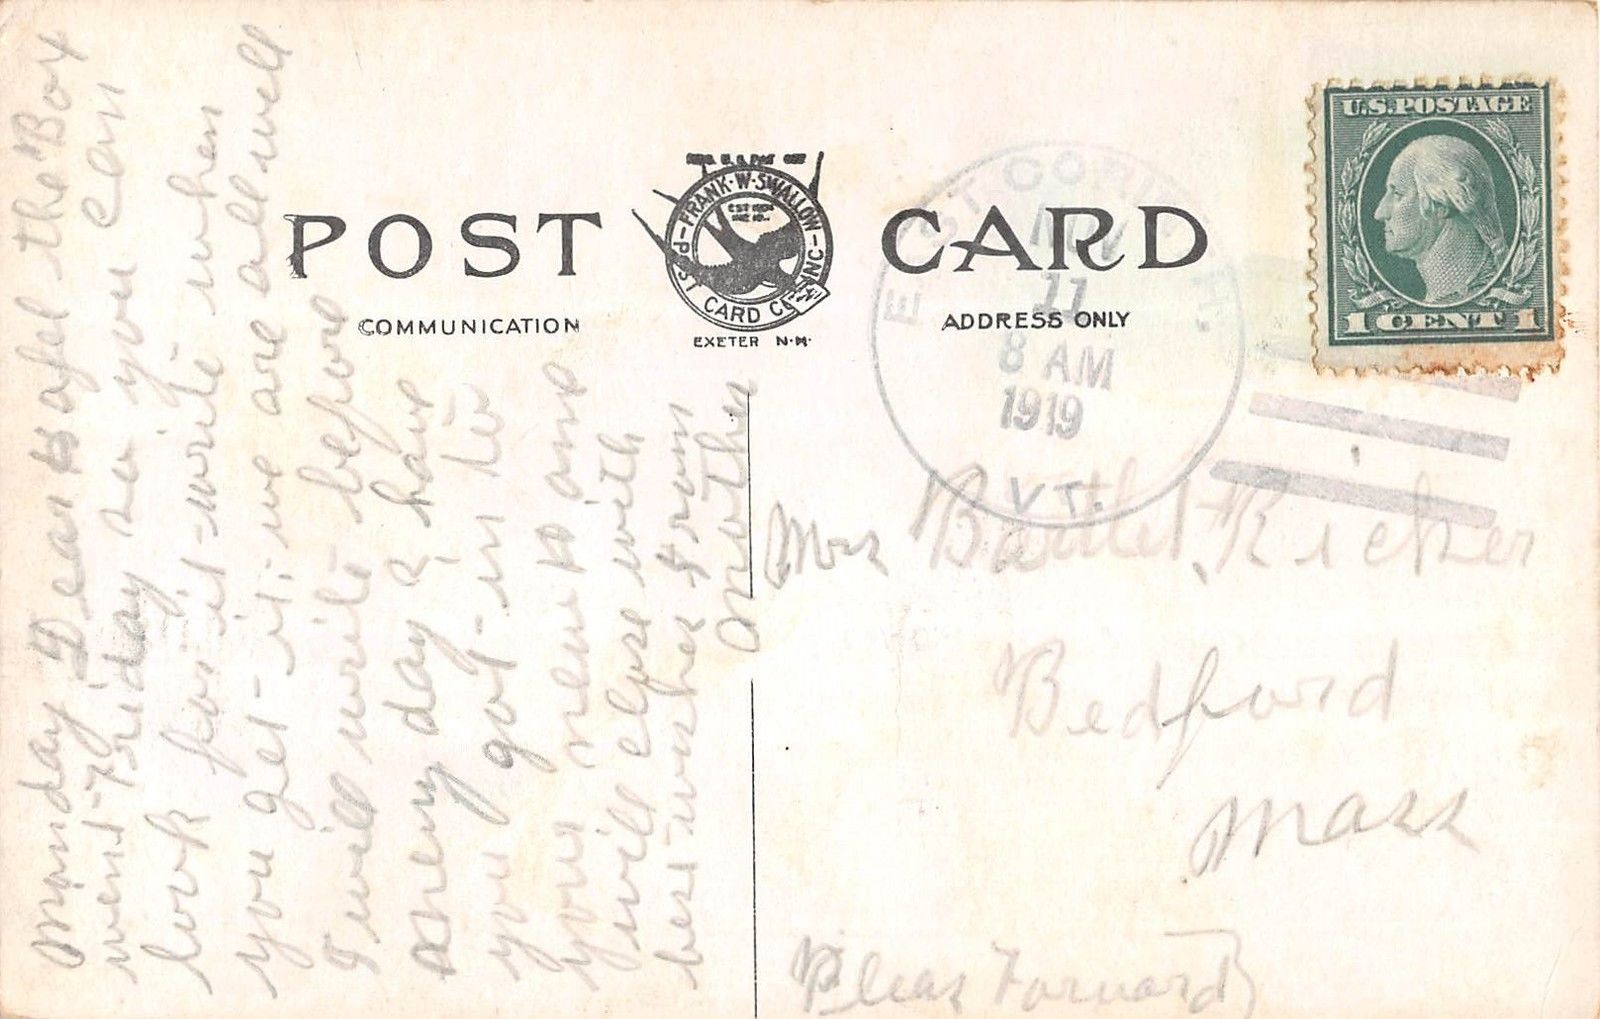 POST CARD
FRANK·W·SWALLOW
POST CARD CO. INC
EXETER N·H·
COMMUNICATION
ADDRESS ONLY
U.S.POSTAGE
1 CENT 1
EAST COR
NOV
11
8 AM
1919
VT.
Monday Dear the Box
went Friday so you can
look for it write when
you get it. we are all well
I will write before
many day I have
you got in to
your new and
I will close with
best wishes from
Mother
Mrs Ricker
Bedford
Mass
Pleas Forward